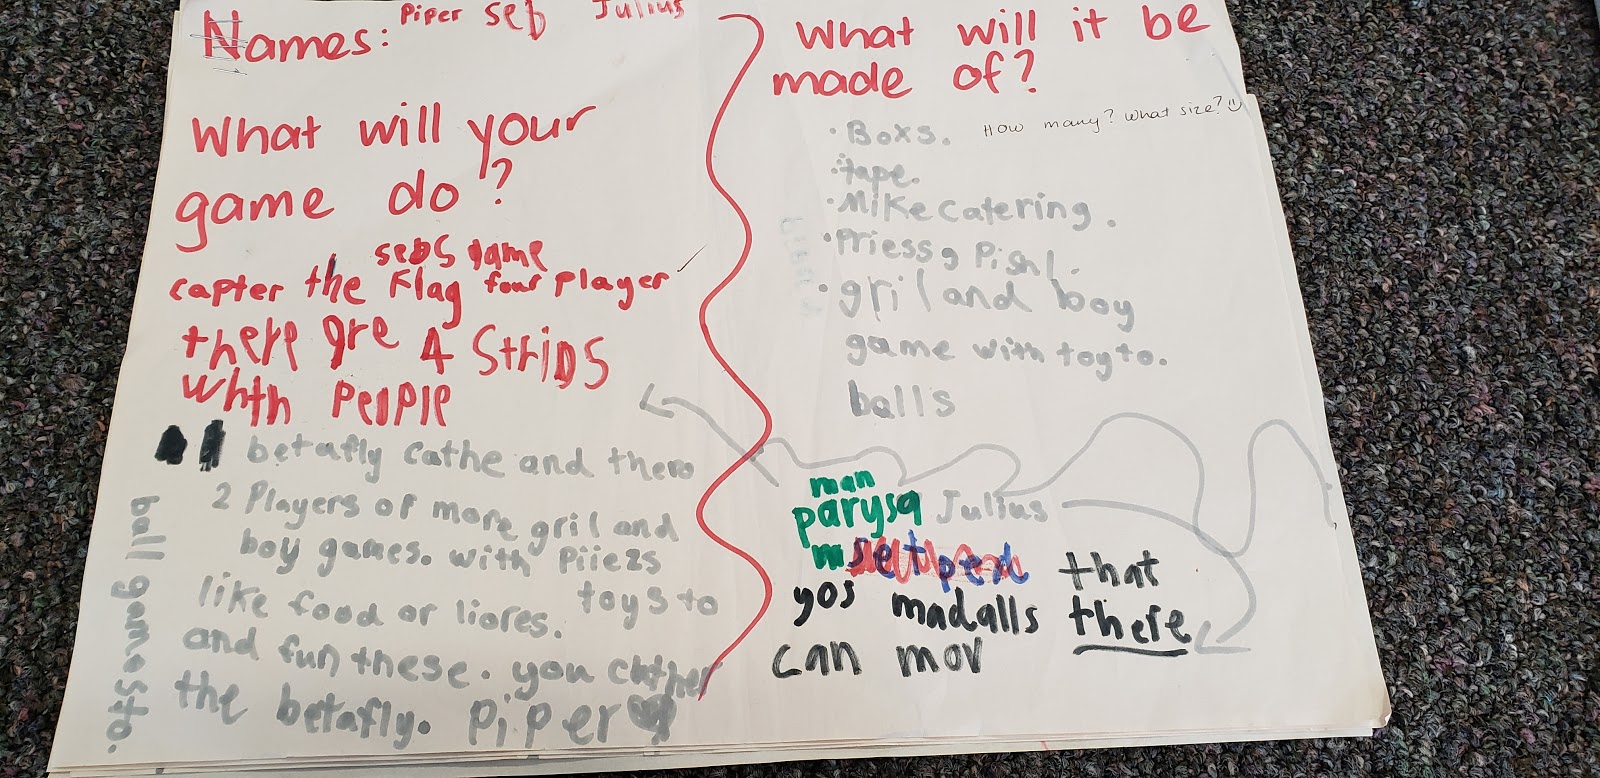 Names: Piper seb Julius
What will your
game do?
sebs game
capter the Flag four player
there are 4 Strips
whth PeiPle
betafly cathe and thero
2 Players of more gril and
boy games. with Piiezs
like food or liores. toys to
and fun these. you cather
the betafly. Piper
ball games to.
What will it be
made of?
How many? What size?
• Boxs.
• tape.
• Mike catering.
• Priess
• gril and boy
game with toy to.
balls
man
parysa Julius
that
yos madalls there
can mov